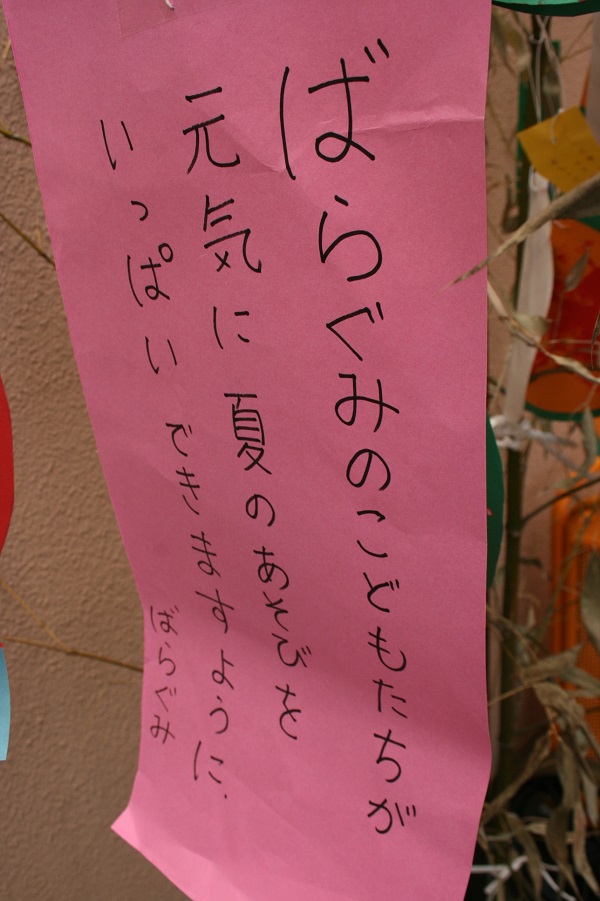 ばらぐみのこどもたちが
元気に 夏のあそびを
いっぱい できますように.
ばらぐみ